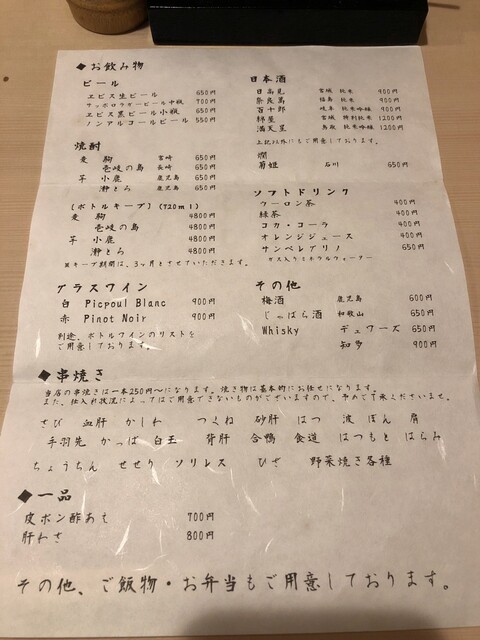 ◆お飲み物
ビール
ヱビス生ビール 650円
サッポロラガービール中瓶 700円
ヱビス黒ビール小瓶 650円
ノンアルコールビール 550円
焼酎
麦 駒 宮崎 650円
壱岐の島 長崎 650円
芋 小鹿 鹿児島 650円
瀞とろ 鹿児島 650円
[ボトルキープ](720ml)
麦 駒 4800円
壱岐の島 4800円
芋 小鹿 4800円
瀞とろ 4800円
※キープ期間は、3ヶ月とさせていただきます。
グラスワイン
白 Picpoul Blanc 900円
赤 Pinot Noir 900円
別途、ボトルワインのリストを
ご用意しております。
日本酒
日高見 宮城 純米 900円
奈良萬 福島 純米 900円
百十郎 岐阜 純米吟醸 900円
綿屋 宮城 特別純米 1200円
満天星 鳥取 純米吟醸 1200円
上記以外にもご用意しております。
燗
菊姫 石川 650円
ソフトドリンク
ウーロン茶 400円
緑茶 400円
コカ・コーラ 400円
オレンジジュース 400円
サンペレグリノ 650円
ガス入りミネラルウォーター
その他
梅酒 鹿児島 600円
じゃばら酒 和歌山 650円
Whisky デュワーズ 650円
知多 900円
◆串焼き
当店の串焼きは一本250円〜になります。焼き物は基本的にお任せになります。
また、仕入れ状況によってはご用意できないものがございますので、予めご了承くださいませ。
さび 血肝 かしわ つくね 砂肝 はつ 波 ぼん 肩
手羽先 かっぱ 白玉 背肝 合鴨 食道 はつもと はらみ
ちょうちん せせり ソリレス ひざ 野菜焼き各種
◆一品
皮ポン酢あえ 700円
肝わさ 800円
その他、ご飯物・お弁当もご用意しております。